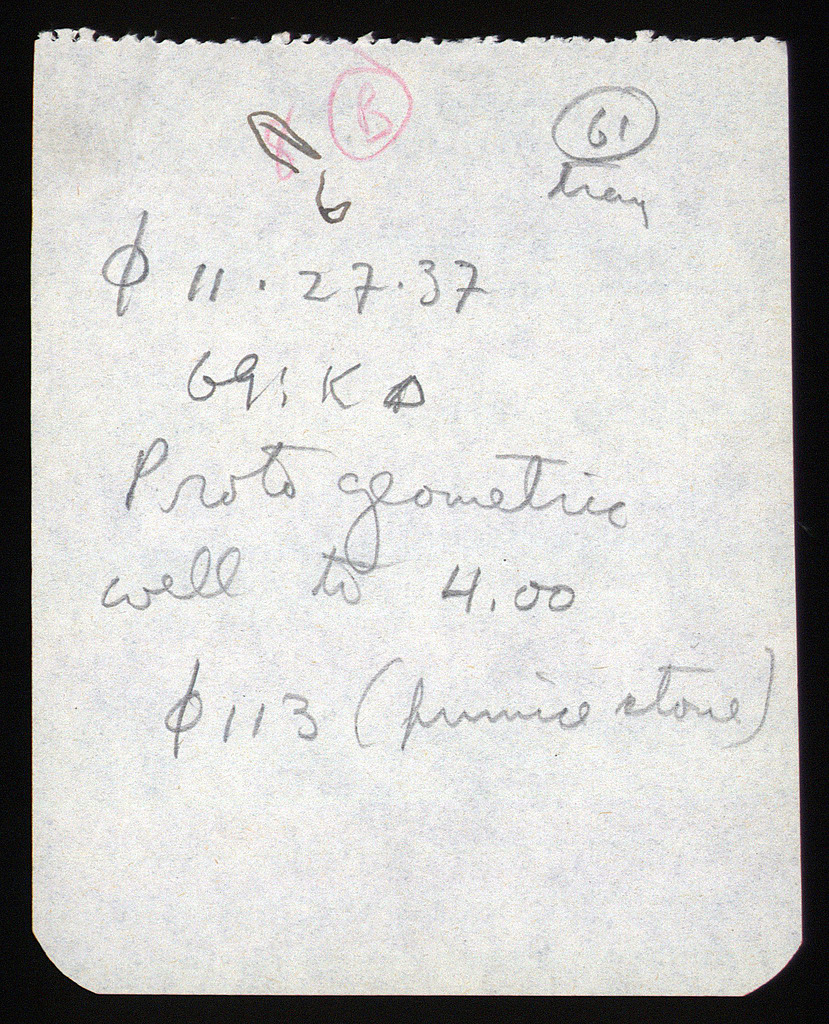 B 61
6 tray
ϕ 11.27.37
69:ΚΔ
Proto geometric
well to 4.00
ϕ113 (pumice stone)